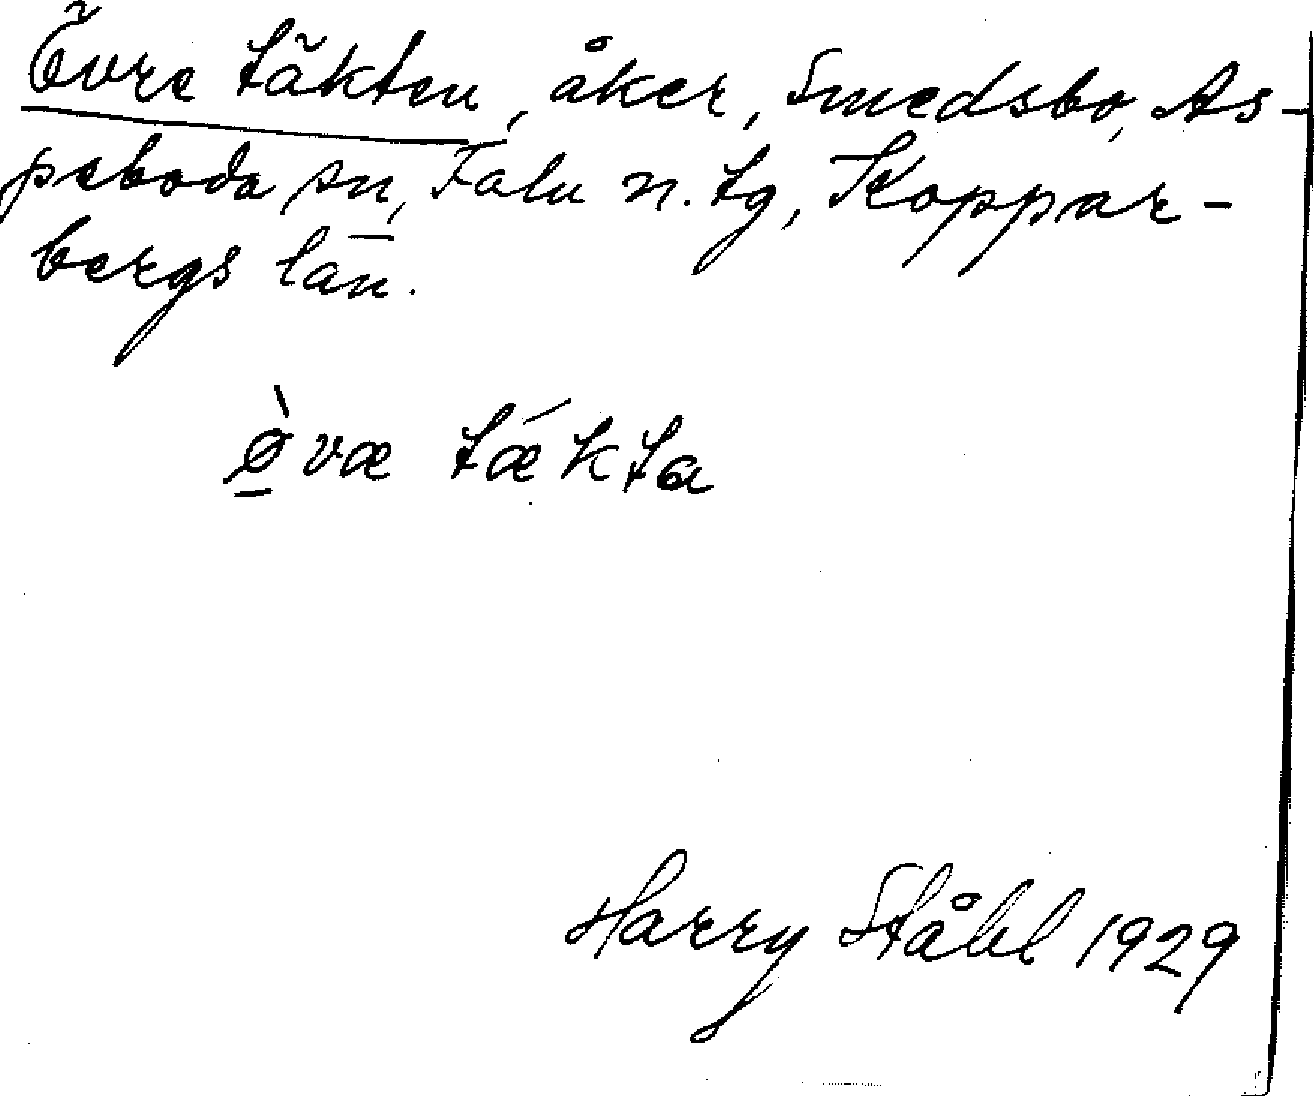 Övre täkten, åker, Smedsbo, As-
peboda sn, Falu n. tg, Koppar-
bergs län.
ø̱̀væ tǽkta
Harry Ståhl 1929